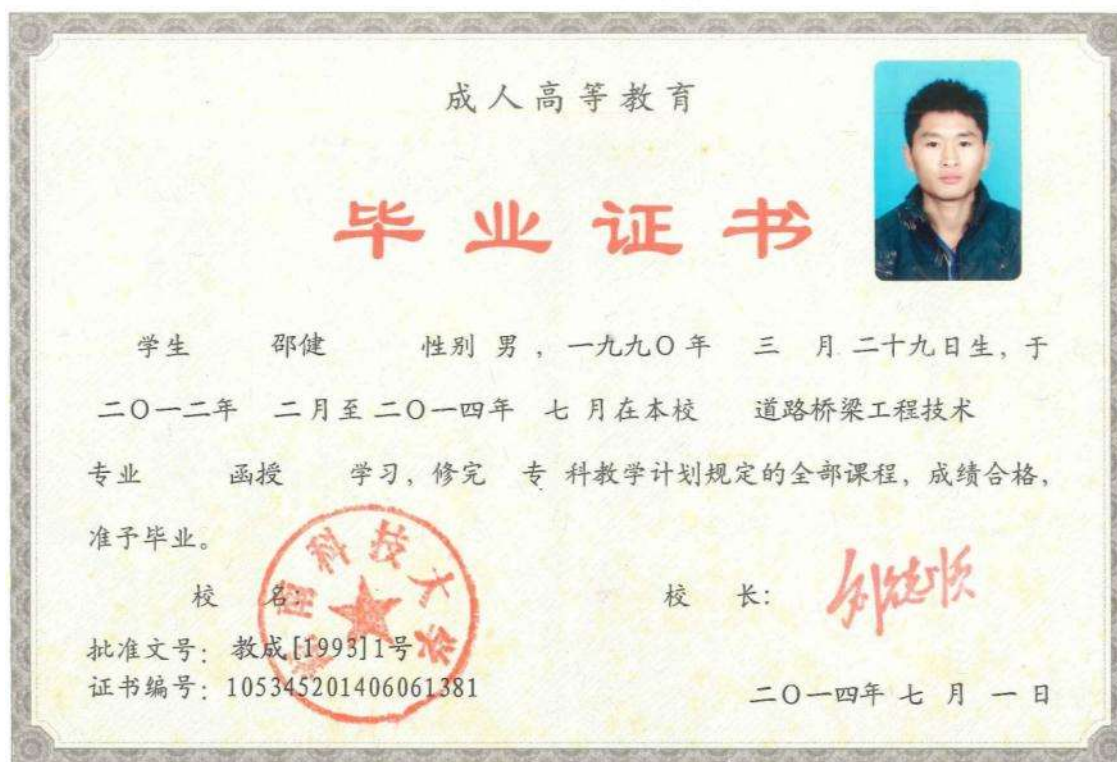 成人高等教育
毕业证书
学生 邵健 性别 男 ，一九九〇年 三 月 二十九日生，于
二〇一二年 二月至二〇一四年 七 月在本校 道路桥梁工程技术
专业 函授 学习，修完 专 科教学计划规定的全部课程，成绩合格，
准予毕业。
校 名： 校 长：
南科技大学
批准文号：教成[1993]1号
证书编号：105345201406061381
二〇一四年 七 月 一 日